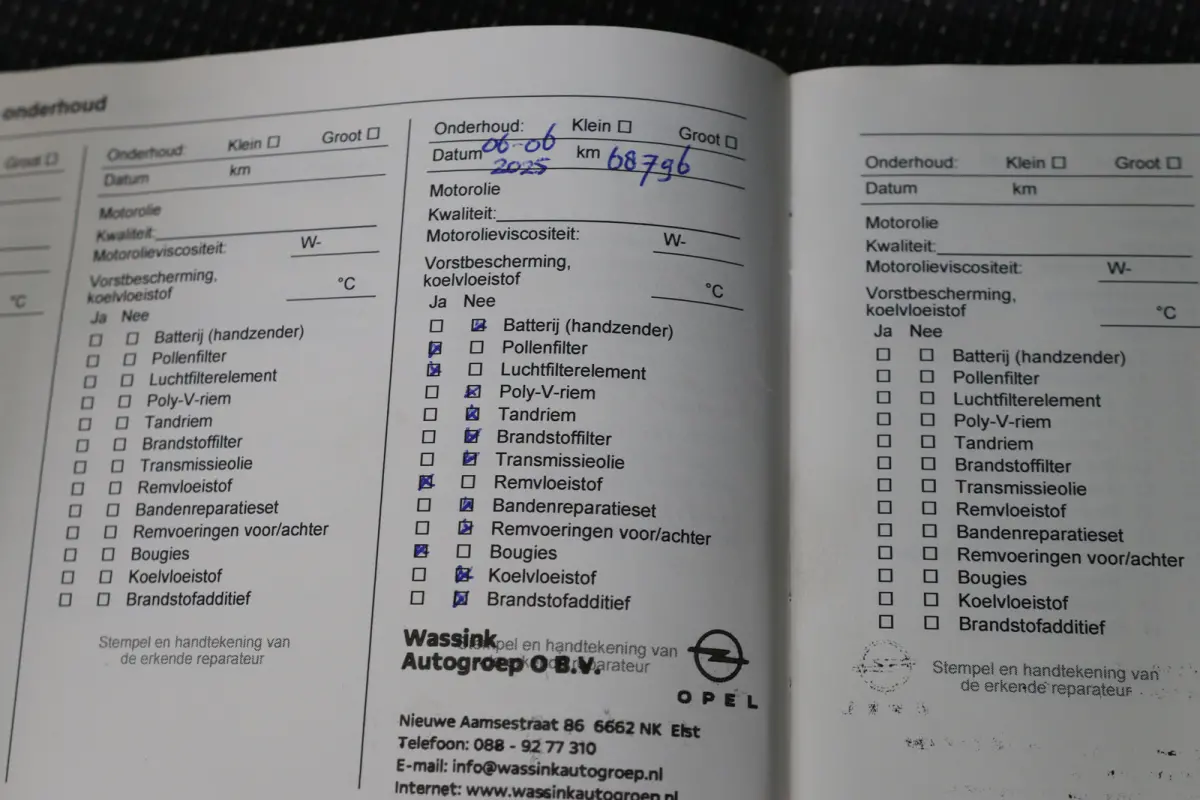 onderhoud
Groot
°C
Onderhoud: Klein Groot
Datum km
Motorolie
Kwaliteit:
Motorolieviscositeit: W-
Vorstbescherming,
koelvloeistof °C
Ja Nee
Batterij (handzender)
Pollenfilter
Luchtfilterelement
Poly-V-riem
Tandriem
Brandstoffilter
Transmissieolie
Remvloeistof
Bandenreparatieset
Remvoeringen voor/achter
Bougies
Koelvloeistof
Brandstofadditief
Stempel en handtekening van
de erkende reparateur
Onderhoud: Klein Groot
Datum 06-06 km 68796
2025
Motorolie
Kwaliteit:
Motorolieviscositeit: W-
Vorstbescherming,
koelvloeistof °C
Ja Nee
Batterij (handzender)
Pollenfilter
Luchtfilterelement
Poly-V-riem
Tandriem
Brandstoffilter
Transmissieolie
Remvloeistof
Bandenreparatieset
Remvoeringen voor/achter
Bougies
Koelvloeistof
Brandstofadditief
Stempel en handtekening van
de erkende reparateur
Wassink
Autogroep O B.V.
OPEL
Nieuwe Aamsestraat 86 6662 NK Elst
Telefoon: 088 - 92 77 310
E-mail: info@wassinkautogroep.nl
Internet: www.wassinkautogroep.nl
Onderhoud: Klein Groot
Datum km
Motorolie
Kwaliteit:
Motorolieviscositeit: W-
Vorstbescherming,
koelvloeistof °C
Ja Nee
Batterij (handzender)
Pollenfilter
Luchtfilterelement
Poly-V-riem
Tandriem
Brandstoffilter
Transmissieolie
Remvloeistof
Bandenreparatieset
Remvoeringen voor/achter
Bougies
Koelvloeistof
Brandstofadditief
Stempel en handtekening van
de erkende reparateur